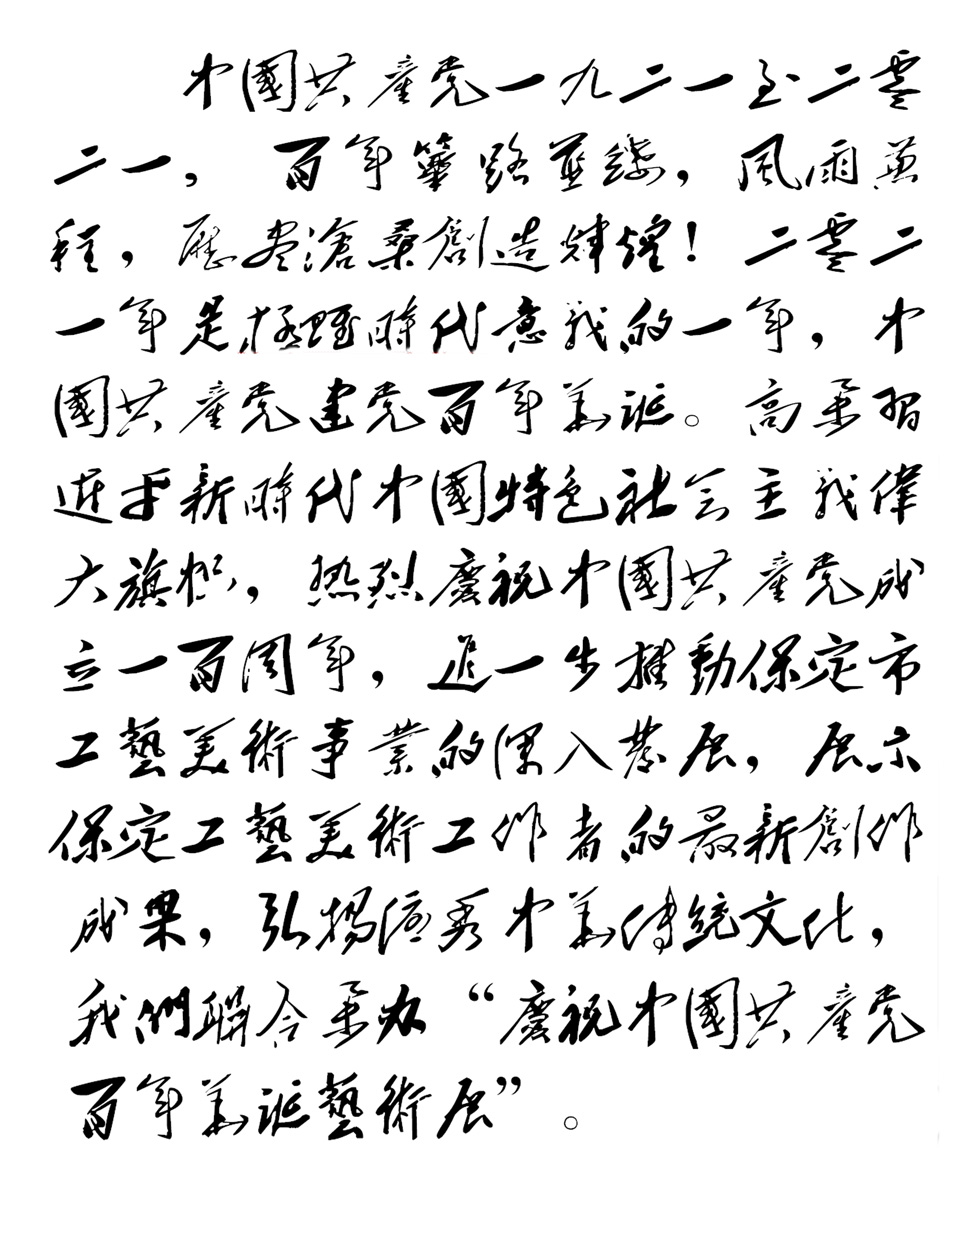 中國共產党一九二一至二零
二一，百年篳路藍縷，風雨兼
程，歷盡滄桑創造輝煌！二零二
一年是極賦時代意義的一年，中
國共產党建党百年華誕。高舉習
近平新時代中國特色社会主義偉
大旗幟，热烈慶祝中國共產党成
立一百周年，進一步推動保定市
工藝美術事業的深入發展，展示
保定工藝美術工作者的最新創作
成果，弘揚優秀中華傳統文化，
我們聯合舉办“慶祝中國共產党
百年華誕藝術展”。